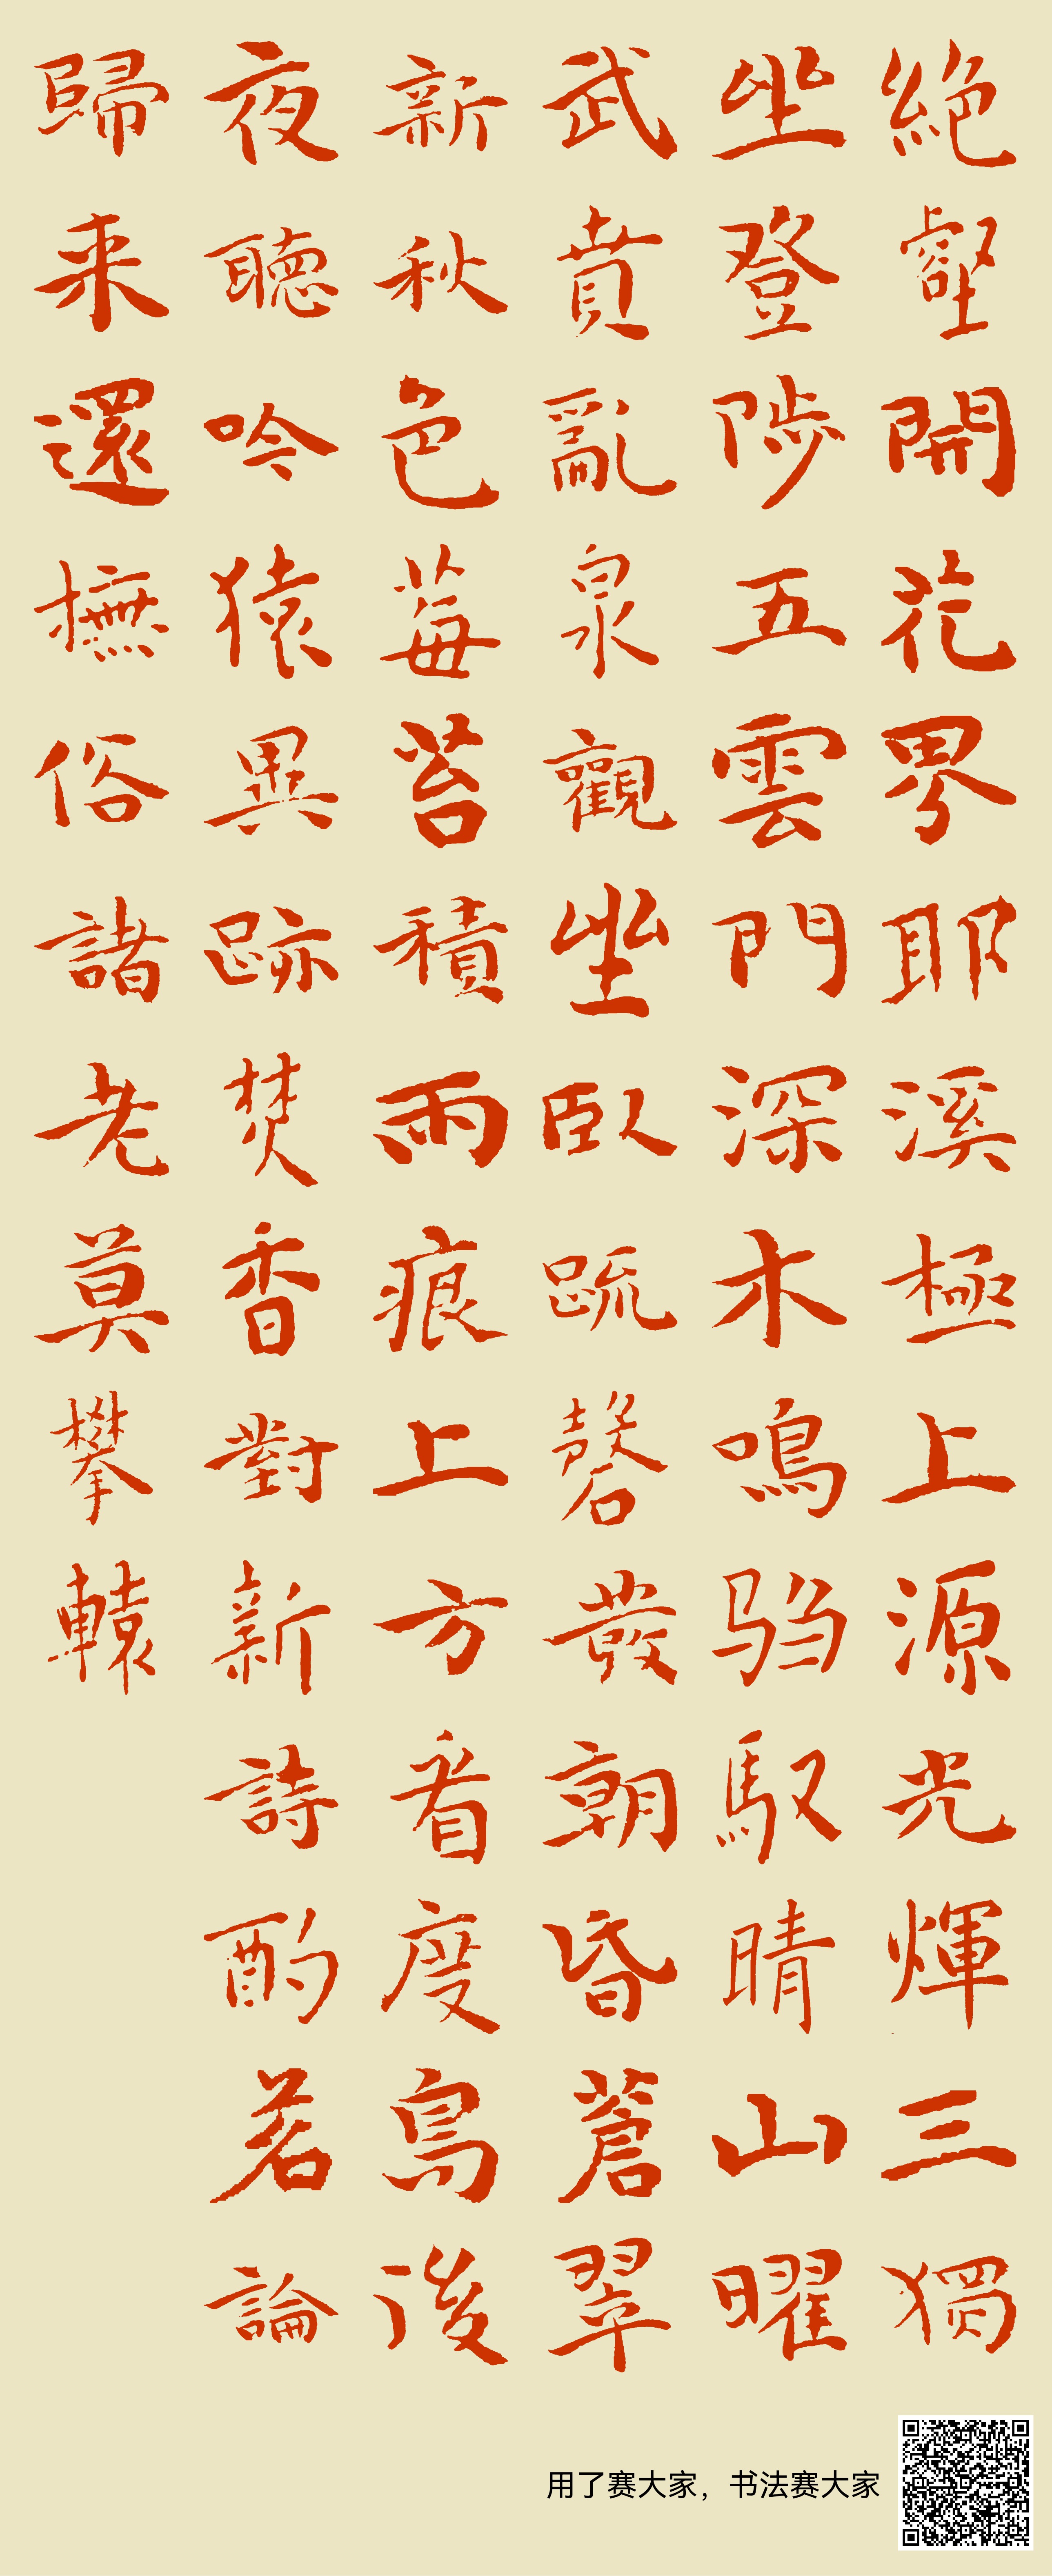 絶壑開花界耶溪極上源光輝三獨
坐登陟五雲門深木鳴驺馭晴山曜
武賁亂泉觀坐臥疏磬發朝昏蒼翠
新秋色莓苔積雨痕上方看度鳥後
夜聽吟猿異跡焚香對新詩酌茗論
歸来還撫俗諸老莫攀轅
用了赛大家，书法赛大家